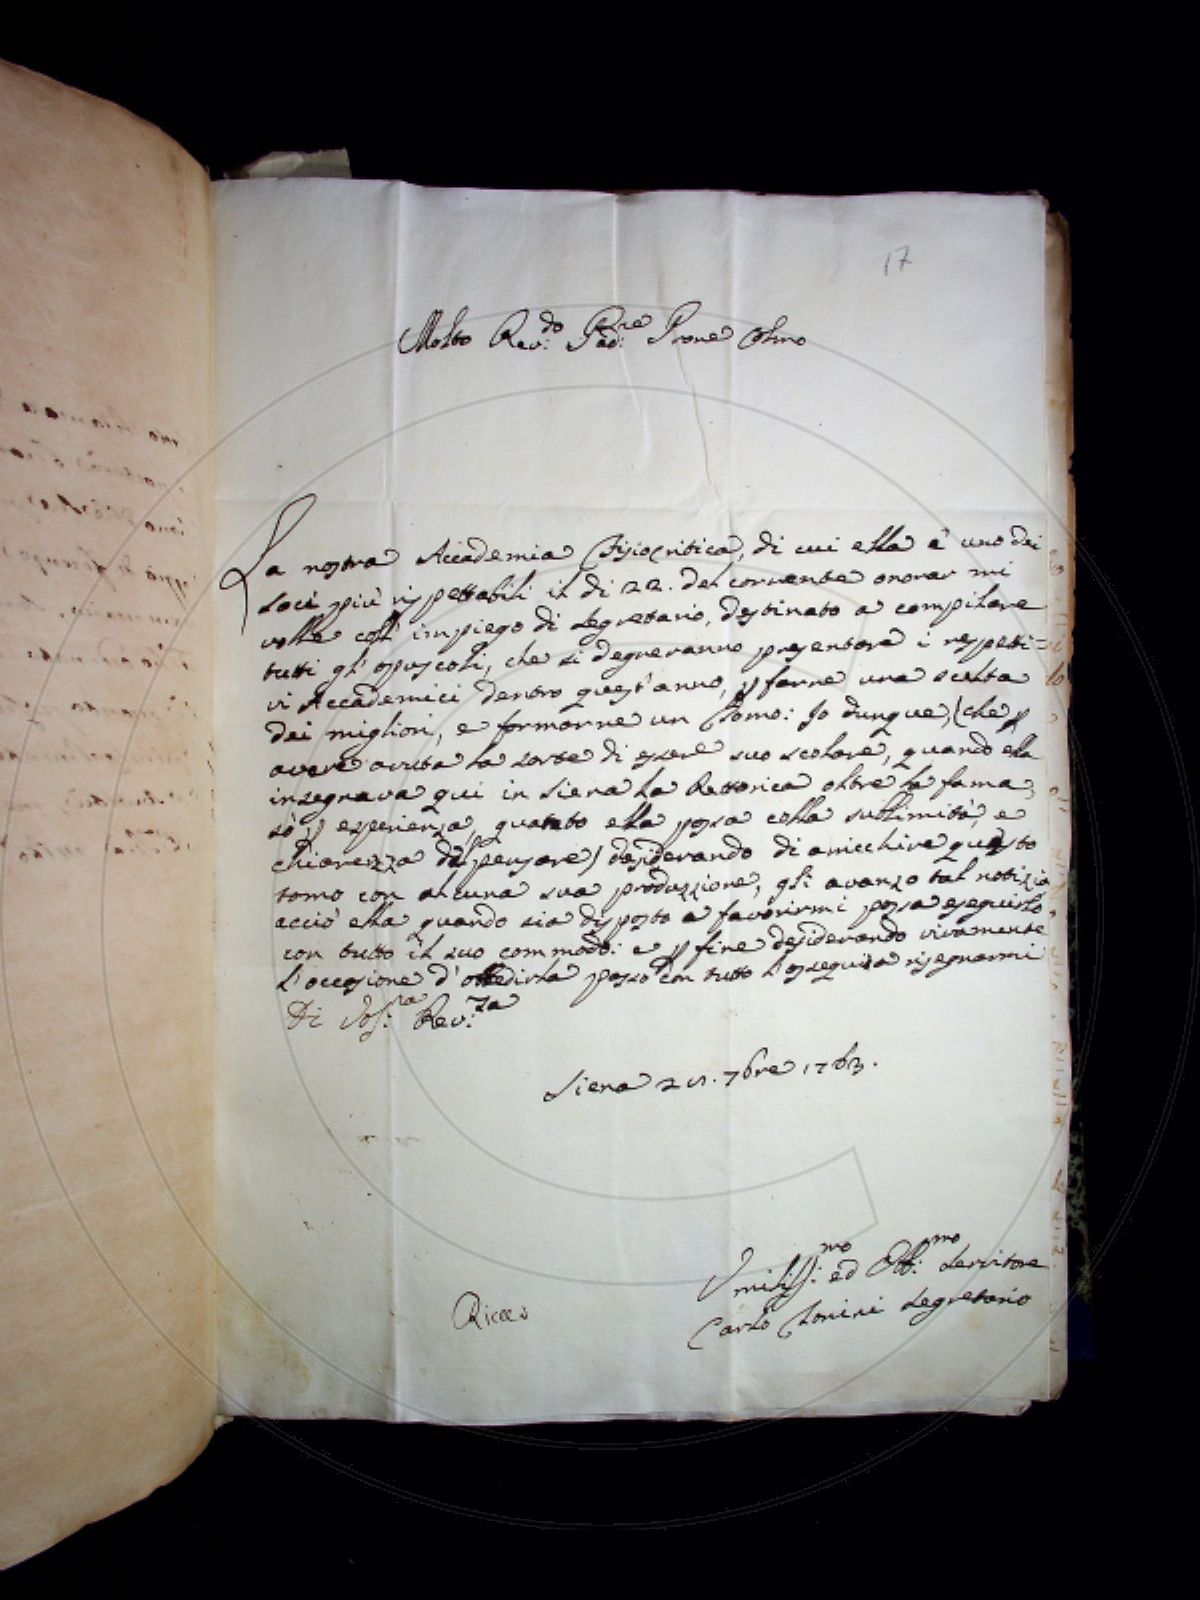 17
Molto Rev:do Pad:re Prone Colmo
La nostra Accademia Fisiocritica, di cui ella è uno dei
socj più rispettabili il di 22. del corrente onorar mi
volle coll' impiego di Segretario, destinato a compilare
tutti gl' opuscoli, che si degneranno presentare i rispetti=
vi Accademici dentro quest'anno, p farne una scelta
dei migliori, e formarne un Tomo: Io dunque, (che p
avere avuta la sorte di essere suo scolare, quando ella
insegnava qui in Siena la Rettorica oltre la fama,
sò p esperienza, quanto ella possa colla sublimità, e
chiarezza del pensare) desiderando di arricchire questo
tomo con alcuna sua produzzione, gli avanzo tal notizia
acciò ella quando sia disposto a favorirmi possa eseguirlo
con tutto il suo commodo: e p fine desiderando vivamente
l'occasione d'obbedirla passo con tutto l'ossequio a risegnarmi
Di Vos:ra Rev:za
Siena 25. 7bre 1763.
Umiliss:mo ed Obb:mo Servitore
Carlo Tonini Segretario